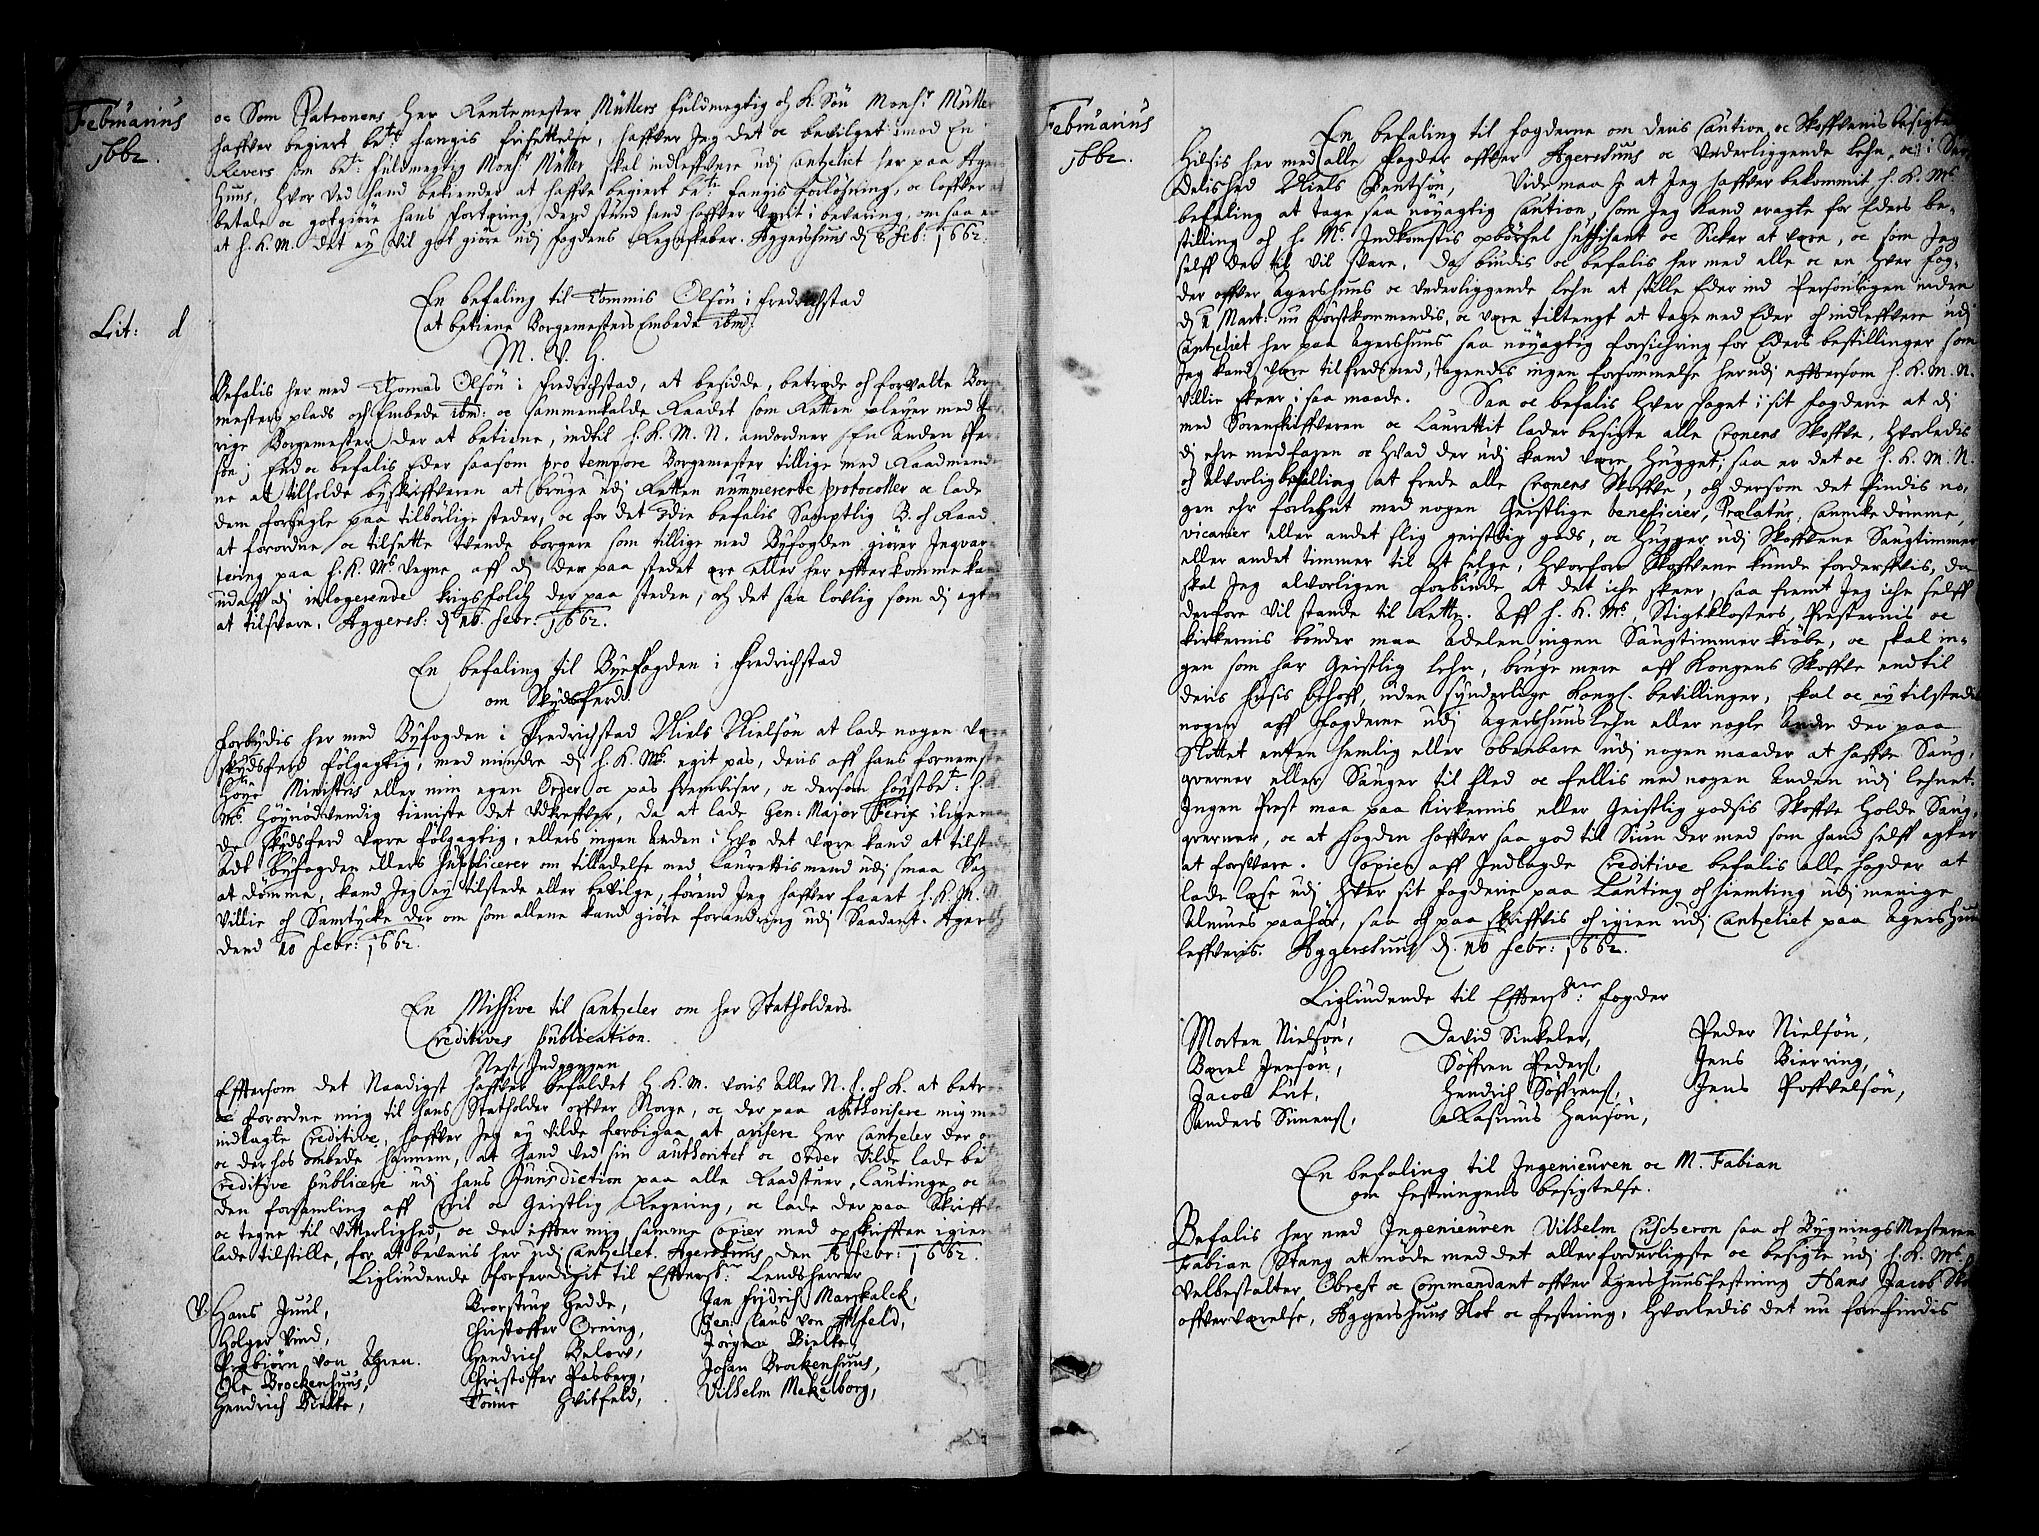 Februarius
1662.
oc Som Patronens Her Rentemester Müllers fuldmegtig oc K. Sön Monsr Müller
haffver begiert bete fangis frisettelse, haffver Jeg det oc bevilget imod En
Revers som be: fuldmegtig Monsr Müller skal indleffvere udj Cantzeliet her paa Agers
Huus, hvor ved hand bekiender at haffve begiert fangis forløsning, oc loffver at
betale oc gotgiöre hans fortæring, dend stund hand haffver været i bevaring, om saa er
at h. K. M. det ey vil got giöre udj fogdens Regnskaber. Aggershuus d 8 feb: 1662.
En befaling til Tommis Olsön i Fredrichstad
at betiene Borgemesters Embede ibm:
M. V. H.
Lit: d
Befalis her med Thomas Olsön i Fredrichstad, at besidde, betræde oc forvalte Borge
mesters plads och Embede ibm: oc sammenkalde Raadet som Retten pleyer med
rige Borgemester der at betiene, indtil h. K. M. N. anordner En Anden Per
son; End oc befalis Eder saasom pro tempore Borgemester tillige med Raadmende
ne at tilholde byskriffveren at bruge udj Retten nummererete protocoller oc lade
dem forsegle paa tilbörlige steder, oc for det 3die befalis Samptlig B. oc Raad
at forordne oc tilsette tvende borgere som tillige med Byfogden giörer Inqvar
tering paa h. K. Ms vegne, aff dj der paa stedet ere eller her effter komme kand
udaff dj inlogerende krigsfolch der paa steden, och det saa lovlig som dj agter
at tilsvare. Aggersh: d 10 febr: 1662.
En befaling til Byefogden i Fredrichstad
om Skydsferd.
Forbydis her med Byfogden i Fredrichstad Niels Nielsön at lade nogen være
skydsferd fölgagtig, med mindre dj h. K. Ms egit pas, deris aff hans fornemste
Höye Ministris eller min egen Order oc pas frembviser, oc dersom höystbe: h. K.
Ms Höynödvendig tieniste det udkreffver, da at lade Gen: Major Ferix iligemaa
de skydsferd være fölgagtig, ellers ingen Anden i hvo det være kand at tilstede
Adt byfogden ellers supplicerer om tilladelse med Laurettismend udj smaa Sager
at dömme, kand Jeg ey tilstede eller bevilge, förend Jeg haffver faaet h. K. M. N.
Villie oc Samtycke der om som allene kand giöre forandring udj Saadant. Agersh
dend 10 febr: 1662.
En Missive til Cantzeler om her Statholders
Creditives publication.
Nest Indgangen
Effersom det Naadigst haffver befaldet h. K. M. voris Aller N. h. oc K. at betroe
oc forordne mig til hans Statholder offver Norge, oc der paa authorisere mig med
indlagte Creditive, haffver Jeg ey vilde forbigaa at avisere Her Cantzeler der om
oc derhos ombede hannem, at hand ved sin authoritet oc order vilde lade be
Creditive publicere udj hans Jurisdiction paa alle Raadstuer, Lautinge oc
den forsamling aff Civil oc Geistlig Regering, oc lade der paa Skriffve
oc tegne til vitterlighed, oc der effter mig samme Copier med opskrifften igien
lade tilstille, for at bevaris her udj Cantzeliet. Agershuus den febr: 1662
Ligliudende forferdiget til Effterskr: Lendsherrer
Hans Juul,
Holger Vind,
Preb iörn von Ahnen.
Ole Brockenhuus,
Hendrich Bielke,
Brostrup Gedde,
Christoffer Orning,
Hendrich Below,
Christoffer Pasberg,
Tönne Hvitfeld,
Jan Fridrich Marskalck,
Gen: Claus von Ahlfeld,
Jörgen Bielke,
Johan Brockenhuus,
Vilhelm Mekelborg,
Februarius
1662.
En befaling til fogderne om deris Caution, oc Skoffvenis besigtelse
Hilsis her med alle fogder offver Agershuus oc underliggende Lehn, oc i Sær
delished Niels Bentsön, Vide maa J at Jeg haffver bekommit h. K. Ms
befaling at tage saa nöyagtig Caution, som Jeg kand eragte for Eders be-
stilling och h. Ms Indkomstis opbörsel suffisant oc Sicker at være, oc som Jeg
selff der til vil svare. Da biudis oc befalis her med alle oc en hver fog-
der offver Agershuus oc underliggende Lehn at stille Eder ind Personligen inden
d 1 Mart: nu förstkommendis, oc være tiltengt at tage med Eder oc indleffvere udj
Cantzeliet her paa Agershuus saa nöyagtig forsichring for Eders bestillinger som
Jeg kand være tilfreds med, tagendis ingen forsömmelse herudj efftersom h. K. M. N.
Villie skeer i saa maade. Saa oc befalis hver foget i sit fogderie at dj
med Sorenskriffveren oc Laurettit lader besigte alle Cronens Skoffve, hvorledis
dj ehre medfaren oc hvad der udj kand være hugget; saa er det oc h. K. M. N.
oc alvorlig befalling at frede alle Cronens Skoffve, oc dersom det findis no-
gen ehr forlehnt med nogen Geistlige beneficier, Prælatur, Cannicke dömme,
vicarier eller andet slig geistlig gods, oc hugger udj Skoffvene Saugtimmer
eller andet timmer til at selge, hvorfore Skoffvene kunde forderffvis, da
skal Jeg alvorligen forbiude at det iche skeer, saa fremt Jeg iche selff
derfore vil stande til Rette. Aff h. K. Ms, Stigtklosters, Presternis oc
kirkernis bönder maa Adelen ingen Saugtimmer kiöbe, oc skal in-
gen som har Geistlig Lehn, bruge mere aff Kongens Skoffve end til
deris husis behoff, uden synderlige Kongl. bevillinger, skal oc ey tilstedis
nogen aff fogderne udj Agershuus Lehn eller nogle Andre der paa
Slottet enten hemlig eller obenbare udj nogen maader at haffve Saug-
qverner eller Sauger til sled oc fellis med nogen Anden udj Lehnet.
Ingen Prest maa paa Kirkernis eller Geistlig godsis Skoffve holde Saug-
qverner, oc at fogden haffver saa god til Siun der med som hand selff agter
at forsvare. Copien aff Indlagde Creditive befalis alle fogder at
lade læse udj hver sit fogderie paa Lauting oc hiemting udj menige
Almues paahör, saa oc paa skriffvis oc igien udj Cantzeliet paa Agershuus
leffveris. Aggershuus d. 10 febr: 1662.
Ligliudende til Effterskne: fogder
Morten Nielsön,
Bærel Jensön,
Jacob Lut,
Anders Simens,
David Sinkeler,
Söffren Peders,
Hendrich Söffrens,
Rasmus Hansön,
Peder Nielsön,
Jens Bierring,
Jens Poffvelsön,
En befaling til Ingenieuren oc M. Fabian
om festningens besigtelse.
Befalis her med Ingenieuren Vilhelm Cuscheron saa och Bygnings Mesteren
Fabian Stang at möde med det allerforderligste oc besigte udj h. K. Ms
velbestalter Obrest oc Commendant offver Agershuus festning Hans Jacob
offververelse, Aggershuus Slot oc festning, hvorledis det nu forefindis